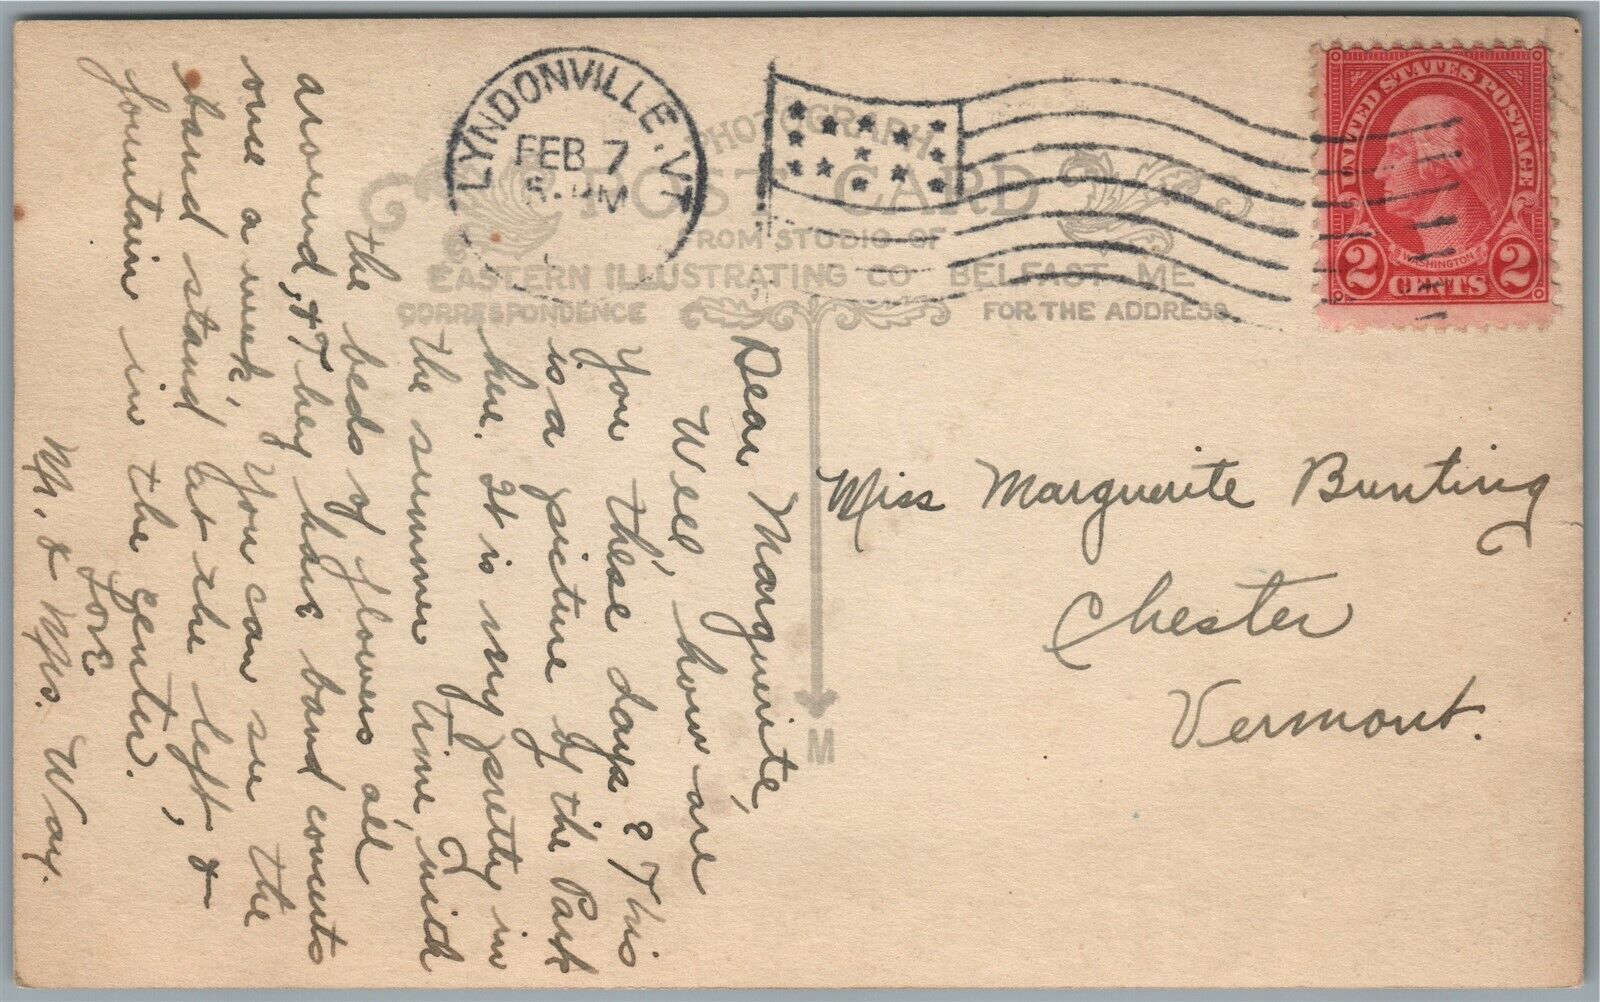 LYNDONVILLE, VT.
FEB 7
PHOTOGRAPH
POST CARD
FROM STUDIO OF
EASTERN ILLUSTRATING CO BELFAST, ME
CORRESPONDENCE
FOR THE ADDRESS
UNITED STATES POSTAGE
WASHINGTON
2 CENTS 2
M
Dear Marguerite,
Well, how are
you these days? This
is a picture of the Park
here. It is very pretty in
the summer time, with
the beds of flowers all
around, & They have band concerts
one a week. You can see the
band stand at the left, &
fountain in the center.
Love
Mr. & Mrs. Way.
Miss Marguerite Bunting
Chester
Vermont.